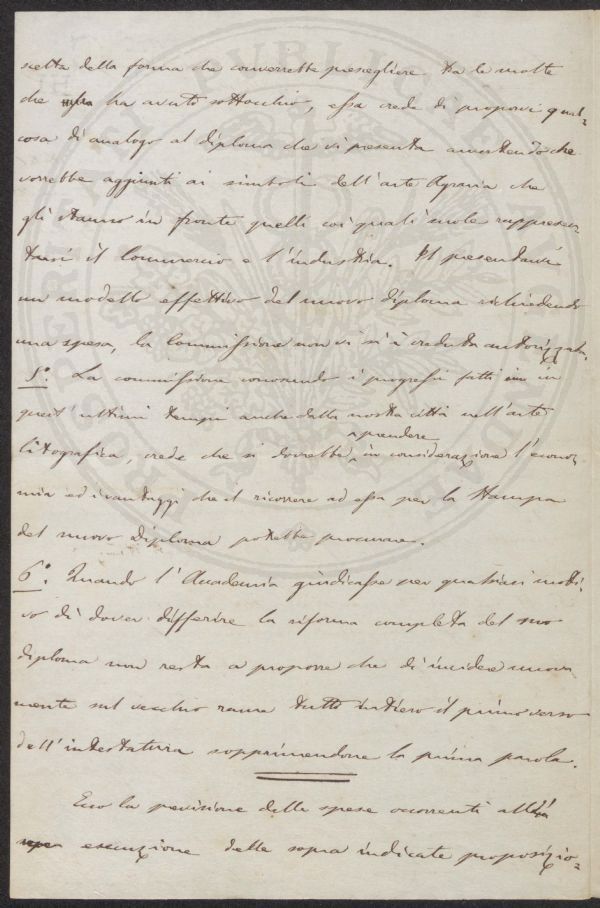 scelta della forma che converrebbe prescegliere. Tra le molte
che ha avuto sottocchio, essa crede di proporvi qual-
cosa di analogo al diploma che vi presenta avvertendo che
vorrebbe aggiunti ai simboli dell'arte Agraria che
gli stanno in fronte quelli coi quali suole rappresen-
tarsi il Commercio e l'industria. Il presentarvi
un modello effettivo del nuovo diploma richiedendo
una spesa, la Commissione non vi si è creduta autorizzata.
5.° La commissione conoscendo i progressi fatti in
quest'ultimi tempi anche dalla nostra città nell'arte
litografica, crede che si dovrebbe prendere in considerazione l'econo-
mia ed i vantaggi che il ricorrere ad essa per la stampa
del nuovo Diploma potrebbe procurare.
6.° Quando l'Accademia giudicasse per qualsiasi moti-
vo di dover differire la riforma completa del suo
diploma non resta a proporre che di incidere nuova
mente sul vecchio rame tutto intiero il primo verso
dell'intestatura sopprimendone la prima parola.
Ecco la previsione delle spese occorrenti all'
esecuzione delle sopra indicate proposizio-
PROSPERITATI PUBLICAE AUGENDAE